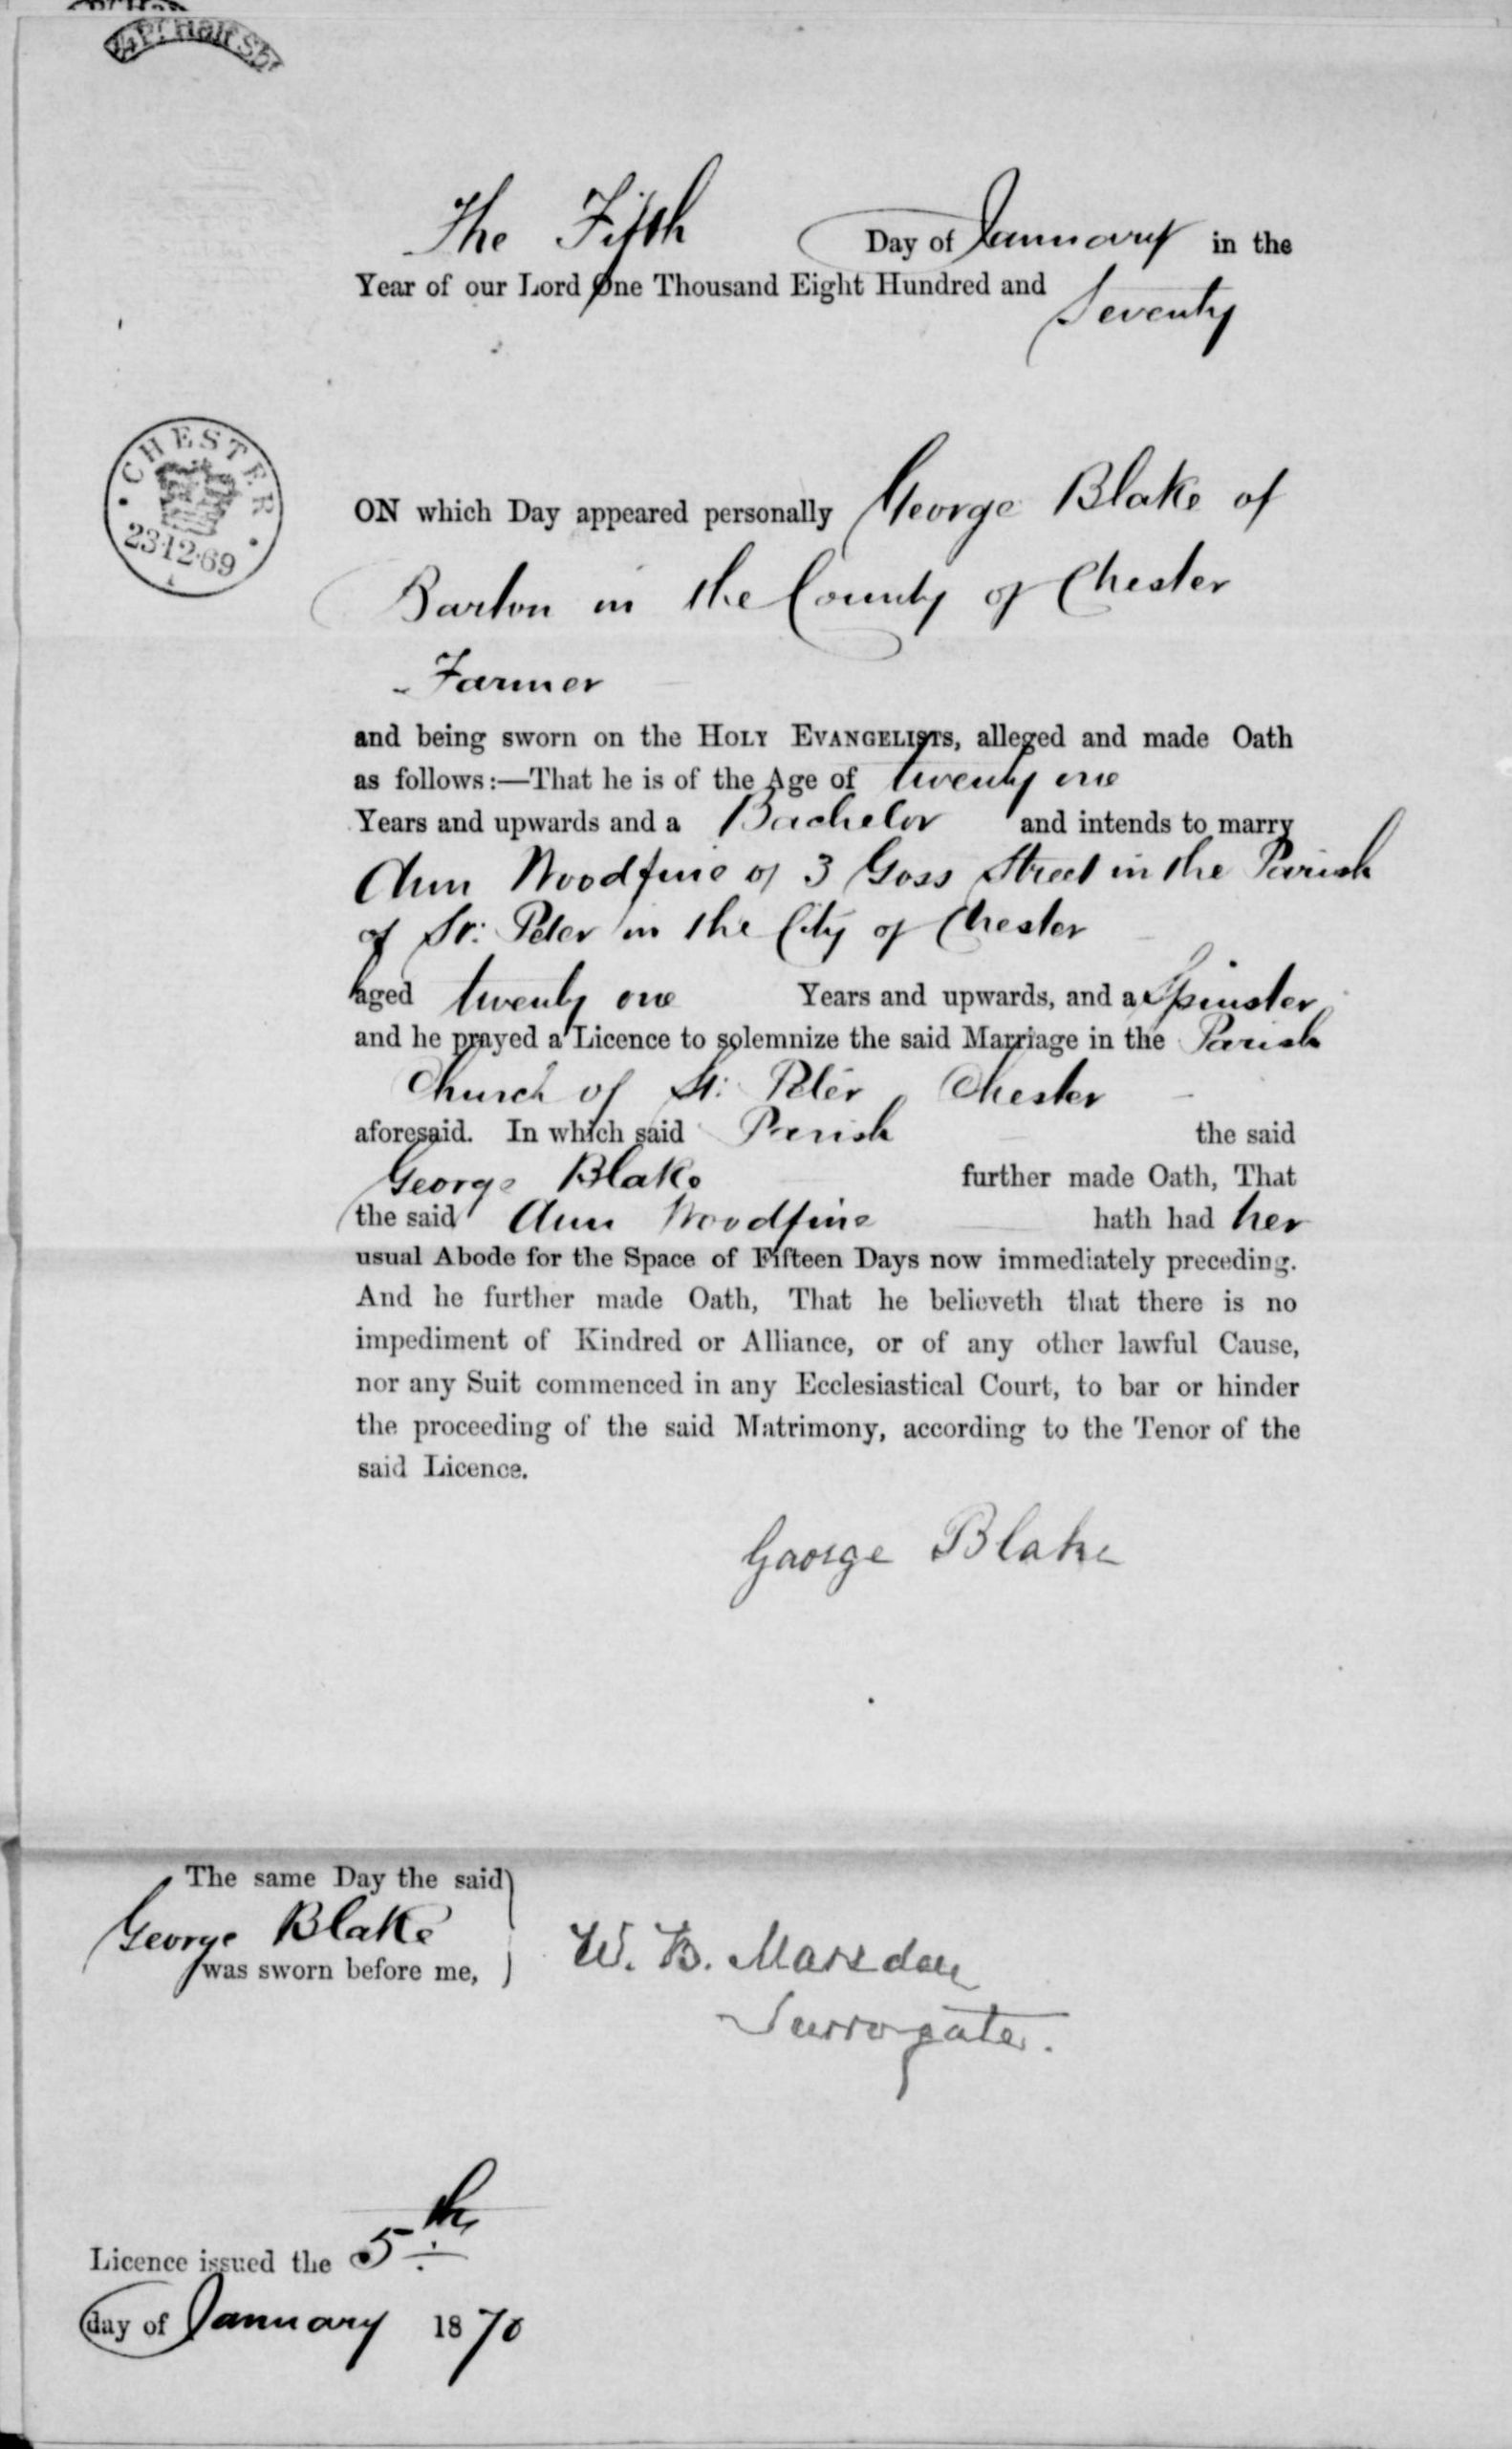 The Fifth Day of January in the
Year of our Lord One Thousand Eight Hundred and
Seventy
CHESTER
23·12·69
ON which Day appeared personally George Blake of
Barton in the County of Chester
Farmer
and being sworn on the HOLY EVANGELISTS, alleged and made Oath
as follows:—That he is of the Age of twenty one
Years and upwards and a Bachelor and intends to marry
Ann Woodfine of 3 Goss Street in the Parish
of St: Peter in the City of Chester
aged twenty one Years and upwards, and a Spinster
and he prayed a Licence to solemnize the said Marriage in the Parish
Church of St: Peter Chester
aforesaid. In which said Parish the said
George Blake further made Oath, That
the said Ann Woodfine hath had her
usual Abode for the Space of Fifteen Days now immediately preceding.
And he further made Oath, That he believeth that there is no
impediment of Kindred or Alliance, or of any other lawful Cause,
nor any Suit commenced in any Ecclesiastical Court, to bar or hinder
the proceeding of the said Matrimony, according to the Tenor of the
said Licence.
George Blake
The same Day the said
George Blake
was sworn before me,
W. B. Marsden
Surrogate.
Licence issued the 5th
day of January 1870